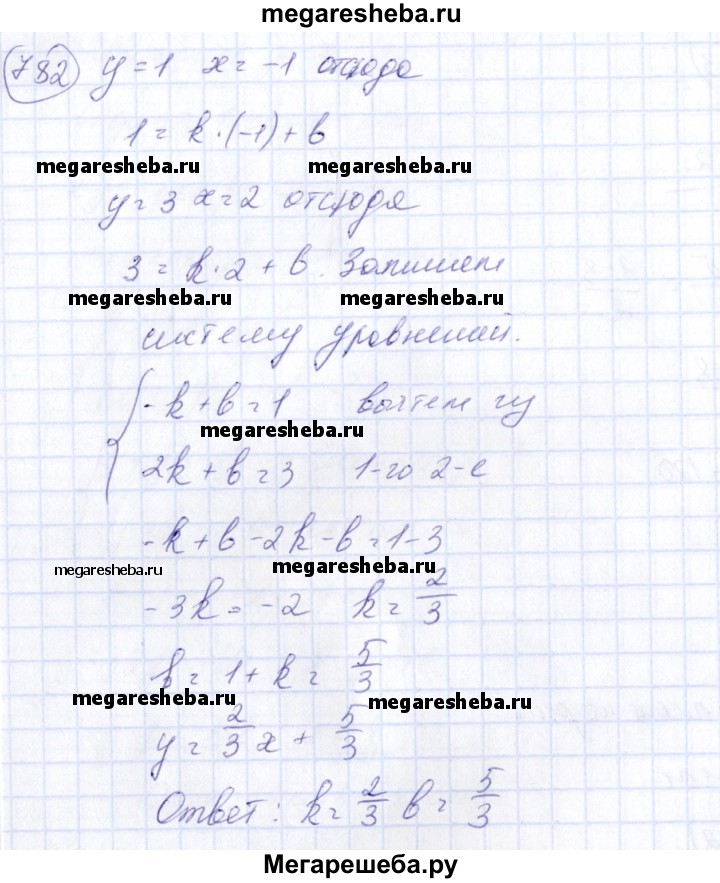 megaresheba.ru
782 y = 1 x = -1 отсюда
1 = k · (-1) + b
megaresheba.ru megaresheba.ru
y = 3 x = 2 отсюда
3 = k · 2 + b. Запишем
megaresheba.ru megaresheba.ru
систему уравнений.
-k + b = 1 вычтем из
megaresheba.ru
2k + b = 3 1-го 2-е
-k + b - 2k - b = 1 - 3
megaresheba.ru megaresheba.ru
-3k = -2 k = 2/3
b = 1 + k = 5/3
megaresheba.ru megaresheba.ru
y = 2/3 x + 5/3
Ответ: k = 2/3 b = 5/3
Мегарешеба.ру